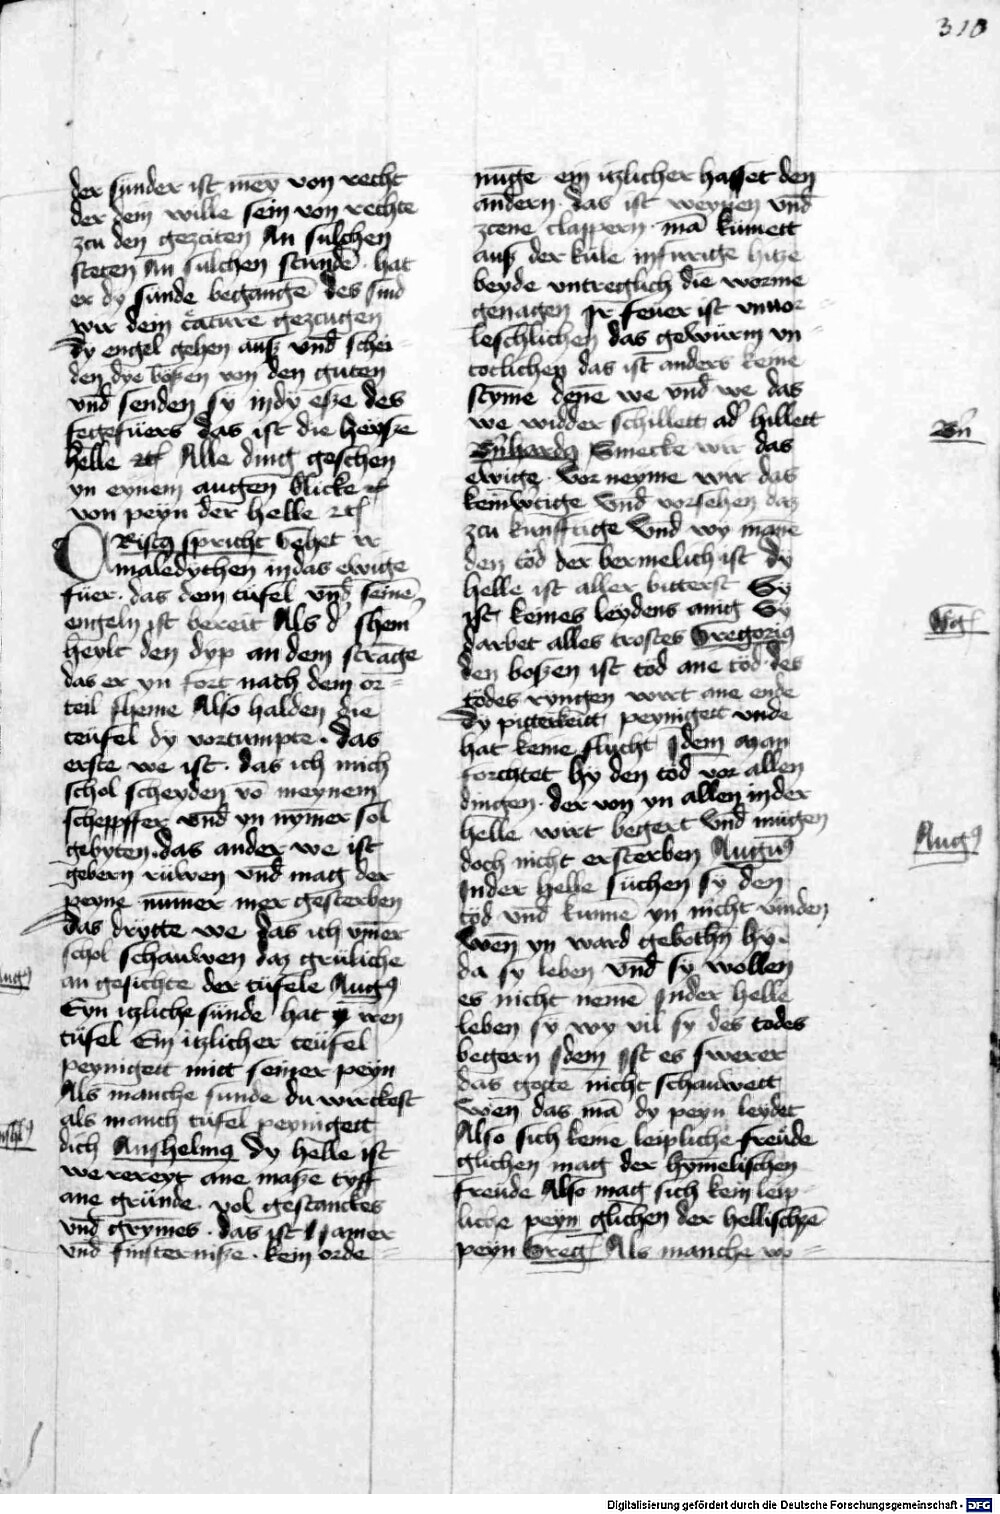 310
der sunder ist mey von recht
der dein wille sein von rechte
zcu den gezciten An sulchen
steten An sulchen stundē hat
er dy sunde begangē des sind
wir dein gezcugen
Dy engel gehen auß vnd schei-
den dye boßen von den guten
vnd senden sy indy eße des
fegefüers das ist die heyse
helle Alle ding geschen
yn eynem augen blicke
von peyn der helle
spricht
maledychen indas ewige
füer. das dem tüfel vnd seinē
engeln ist bereit Als d
den dyp an dem
das er yn fort nach dem or=
teil Also halden die
teüfel dy vortumpte. das
erste we ist. das ich mich
schol scheyden vō meynem
scheppffer vnd yn nymer sol
gebyten. das ander we ist
gebern rüwen vnd mag der
peyne nūmer mer gesterben
Das drytte we das ich ymer
schol schauwen daz grüliche
an gesichte der tüfele Augꝰ
Eyn itzliche sünde hat wen
tüfel Ein itzlicher teüfel
peynigett mitt seiner peyn
Als manche sunde du wirckest
als manch tüfel peynigett
dich Anshelmꝰ Dy helle ist
ane maße tyff
ane gründe. vol gestanckes
vnd grymes. das ist Jamer
vnd finsterniße. kein orde=
nūge ein itzlicher hasset den
andern. das ist weynen vnd
zcene clappern. mā kümett
auß der küle infurige hitze
beyde vntreglich die worme
genagen Jr feüer ist vnuor=
leschlichen das gewürm vn=
totlichen das ist anders keine
styme denē we vnd we das
we widder schillett ad hillett
Smecke wir das
ewige. vor neyme wir das
vnd vorsehen daz
zcu kunfftige Vnd wy
den töd der bermelich ist dy
helle ist aller bitterst Sy
ist keines leydens Sy
darbet alles trostes Gregoriꝰ
den boßen ist tod ane töd. des
todes ryngen wirt ane ende
Dy pitterkeitt peynigett vnde
hat keine flucht Jdem Man
forchtet hy den töd vor allen
dingen. der von yn allen in der
helle wirt begert vnd mügen
doch nicht ersterben Augꝰ
Jnder helle süchen sy den
töd vnd kunnē yn nicht vinden
Wen yn ward hy.
da sy leben vnd sy wollen
es nicht nemē Jnder helle
leben sy wy vil sy des todes
begern Jdem Jst es swerer
das gotte nicht schauwett
wen das mā dy peyn leydet
Also sich keine leipliche freüde
glichen mag der hymelischen
freüde Also mag sich kein leip-
liche peyn glichen der hellischē
peyn Greg Als manche wo=
Augꝰ